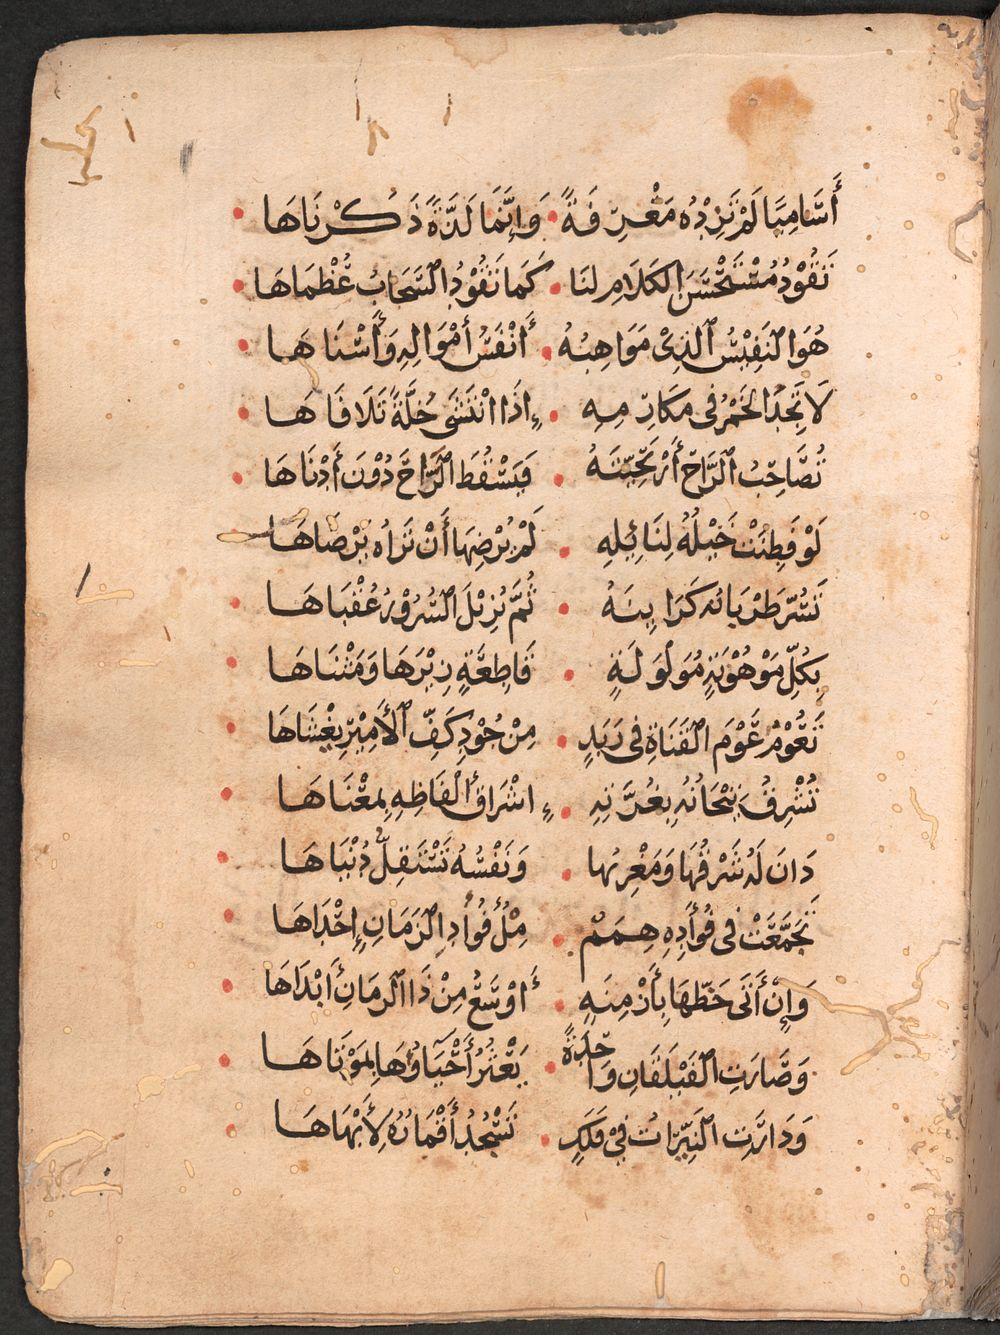 أَسَامِيًا لَمْ تَزِدْهُ مَعْرِفَةً • وَإِنَّمَا لَذَّةً ذَكَرْنَاهَا •
تَقُوْدُ مُسْتَحْسَنَ الكَلَامِ لنَا • كَمَا تَقُوْدُ السَّحَابُ عُظْمَاهَا •
هُوَ النَفِيْسُ الَّذِيْ مَوَاهِبُهُ • أَنْفَسُ أَمْوَالِهِ وَأَسْنَاهَا •
لَا تَجِدُ الخَمْرُ فِى مَكَارِمِهِ • إِذَا انْتَشَى خُلَّةً تَلَافَاهَا •
تُصَاحِبُ الرَّاحَ أَرْيَحِيَّتُهُ • فَيَسْقُطُ الرَّاحُ دُوْنَ أَدْنَاهَا •
لَوْ فَطِنَتْ خَيْلُهُ لِنَائِلِهِ • لَمْ يُرْضِهَا أَنْ تَرَاهُ يَرْضَاهَا •
تَسُرُّ طَرْبَاتُهُ كَرَايِنَهُ • ثُمَّ تُزِيْلُ السُّرُوْرَ عُقْبَاهَا •
بِكُلِّ مَوْهُوْبَةٍ مُوَلْوَلَةٍ • قَاطِعَةٍ زِيْرَهَا وَمَثْنَاهَا •
تَعُوْمُ عَوْمَ القَذَاةِ فِى زَبَدٍ • مِنْ جُوْدِ كَفِّ الأَمِيْرِ يَغْشَاهَا •
تُشْرِقُ تِيْجَانُهُ بِغُرَّتِهِ • إِشْرَاقَ أَلْفَاظِهِ بِمَعْنَاهَا •
دَانَ لَهُ شَرْقُهَا وَمَغْرِبُها • وَنَفْسُهُ تَسْتَقِلُّ دُنْيَاهَا •
تَجَمَّعَتْ فِى فُؤَادِهِ هِمَمٌ • مِلْءُ فُؤَادِ الزَمَانِ إِحْدَاهَا •
وَإِنْ أَتَى حَظُّهَا بِأَزْمِنَةٍ • أَوْسَعَ مِنْ ذَا الزَمَانِ أَبْدَاهَا •
وَصَارَتِ الفَيْلَقَانِ وَاحِدَةً • يَعْثُرُ أَحْيَاؤُهَا بِمَوْتَاهَا •
وَدَارَتِ النَيِّرَاتُ فِيْ فَلَكٍ • تَسْجُدُ أَقْمَارُهُ لِأَبْهَاهَا •